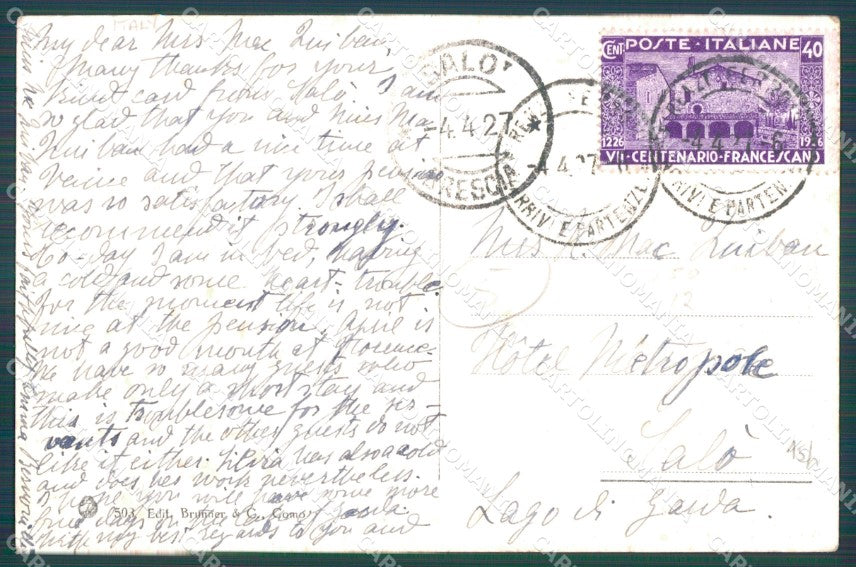 ITALY
My dear Miss Mac Quiban
Many thanks for your
kind card from Salò. I am
so glad that you and Miss Mac
Quiban had a nice time at
Venice and that your pension
was so satisfactory. I shall
recommend it strongly.
To-day I am in bed, having
a cold and some heart-trouble.
for the moment life is not
nice at the pension. April is
not a good month at Florence.
We have so many guests who
make only a short stay and
this is troublesome for the ser-
vants and the other guests do not
like it either. Silvia has also a cold
and does her work nevertheless.
I hope you will have some more
fine days on the Lago di Garda
With my best regards to you and
Miss Mac Quiban
503 Edit. Brunner & C., Como
POSTE · ITALIANE
CENT 40
1226 1926
VII · CENTENARIO · FRANCESCANO
SALO'
-4.4.27
BRESCIA
-4.4.27
ARRIVI E PARTENZE
-4.4.27.-6
ARRIVI E PARTENZE
Miss Mac Quiban
Hôtel Métropole
Salò
Lago di Garda
CARTOLINOMANIA